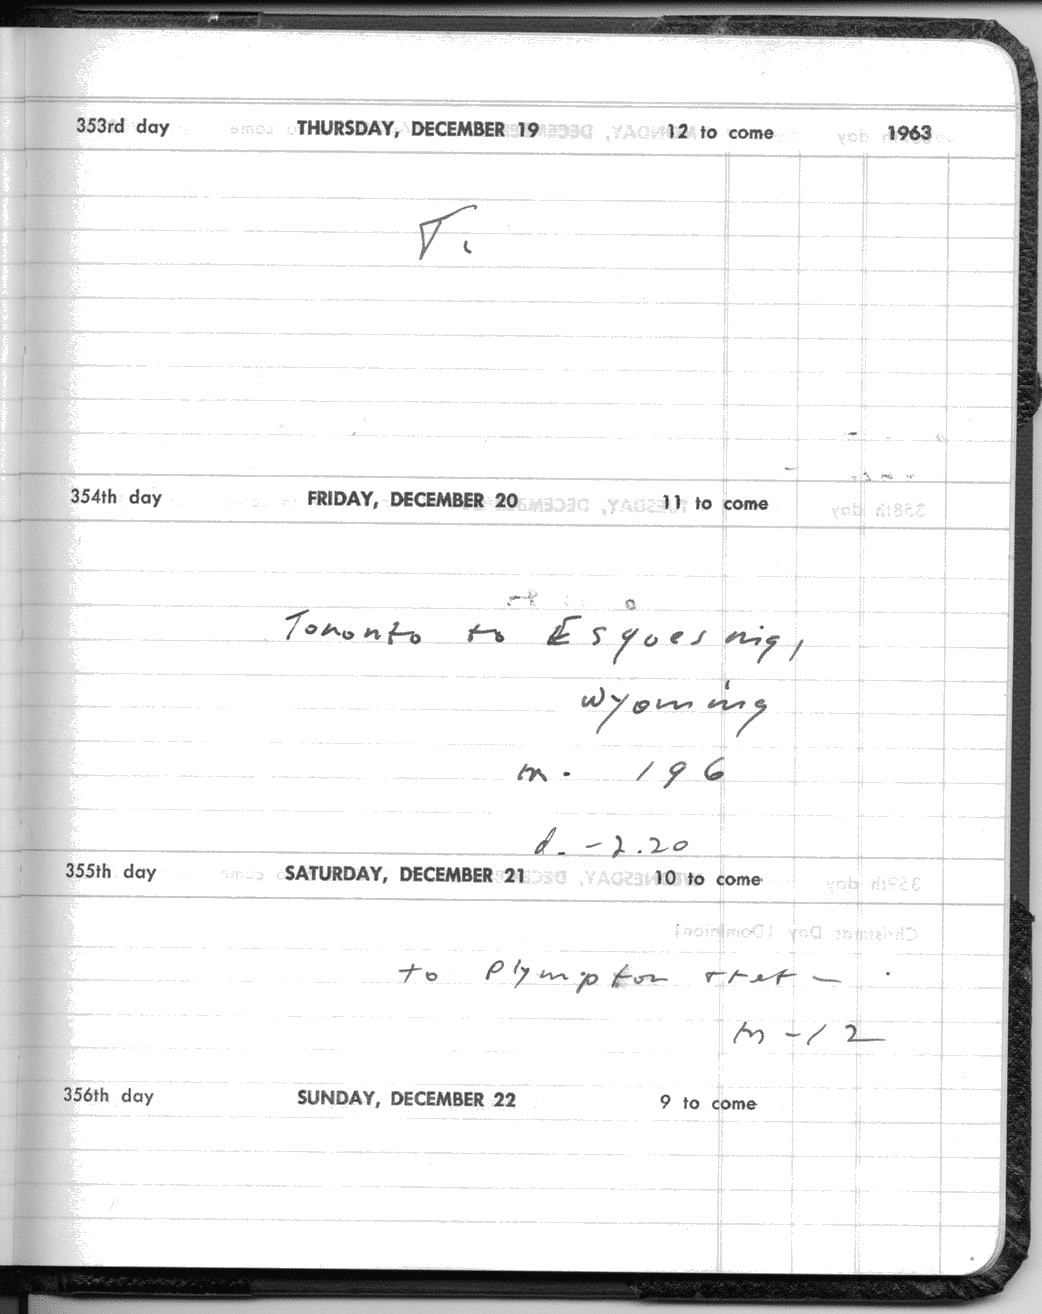 353rd day THURSDAY, DECEMBER 19 12 to come 1963
T.
354th day FRIDAY, DECEMBER 20 11 to come
Toronto to Esquesing,
Wyoming
m. 196
d. - 2.20
355th day SATURDAY, DECEMBER 21 10 to come
to Plympton & ret -
m - 12
356th day SUNDAY, DECEMBER 22 9 to come